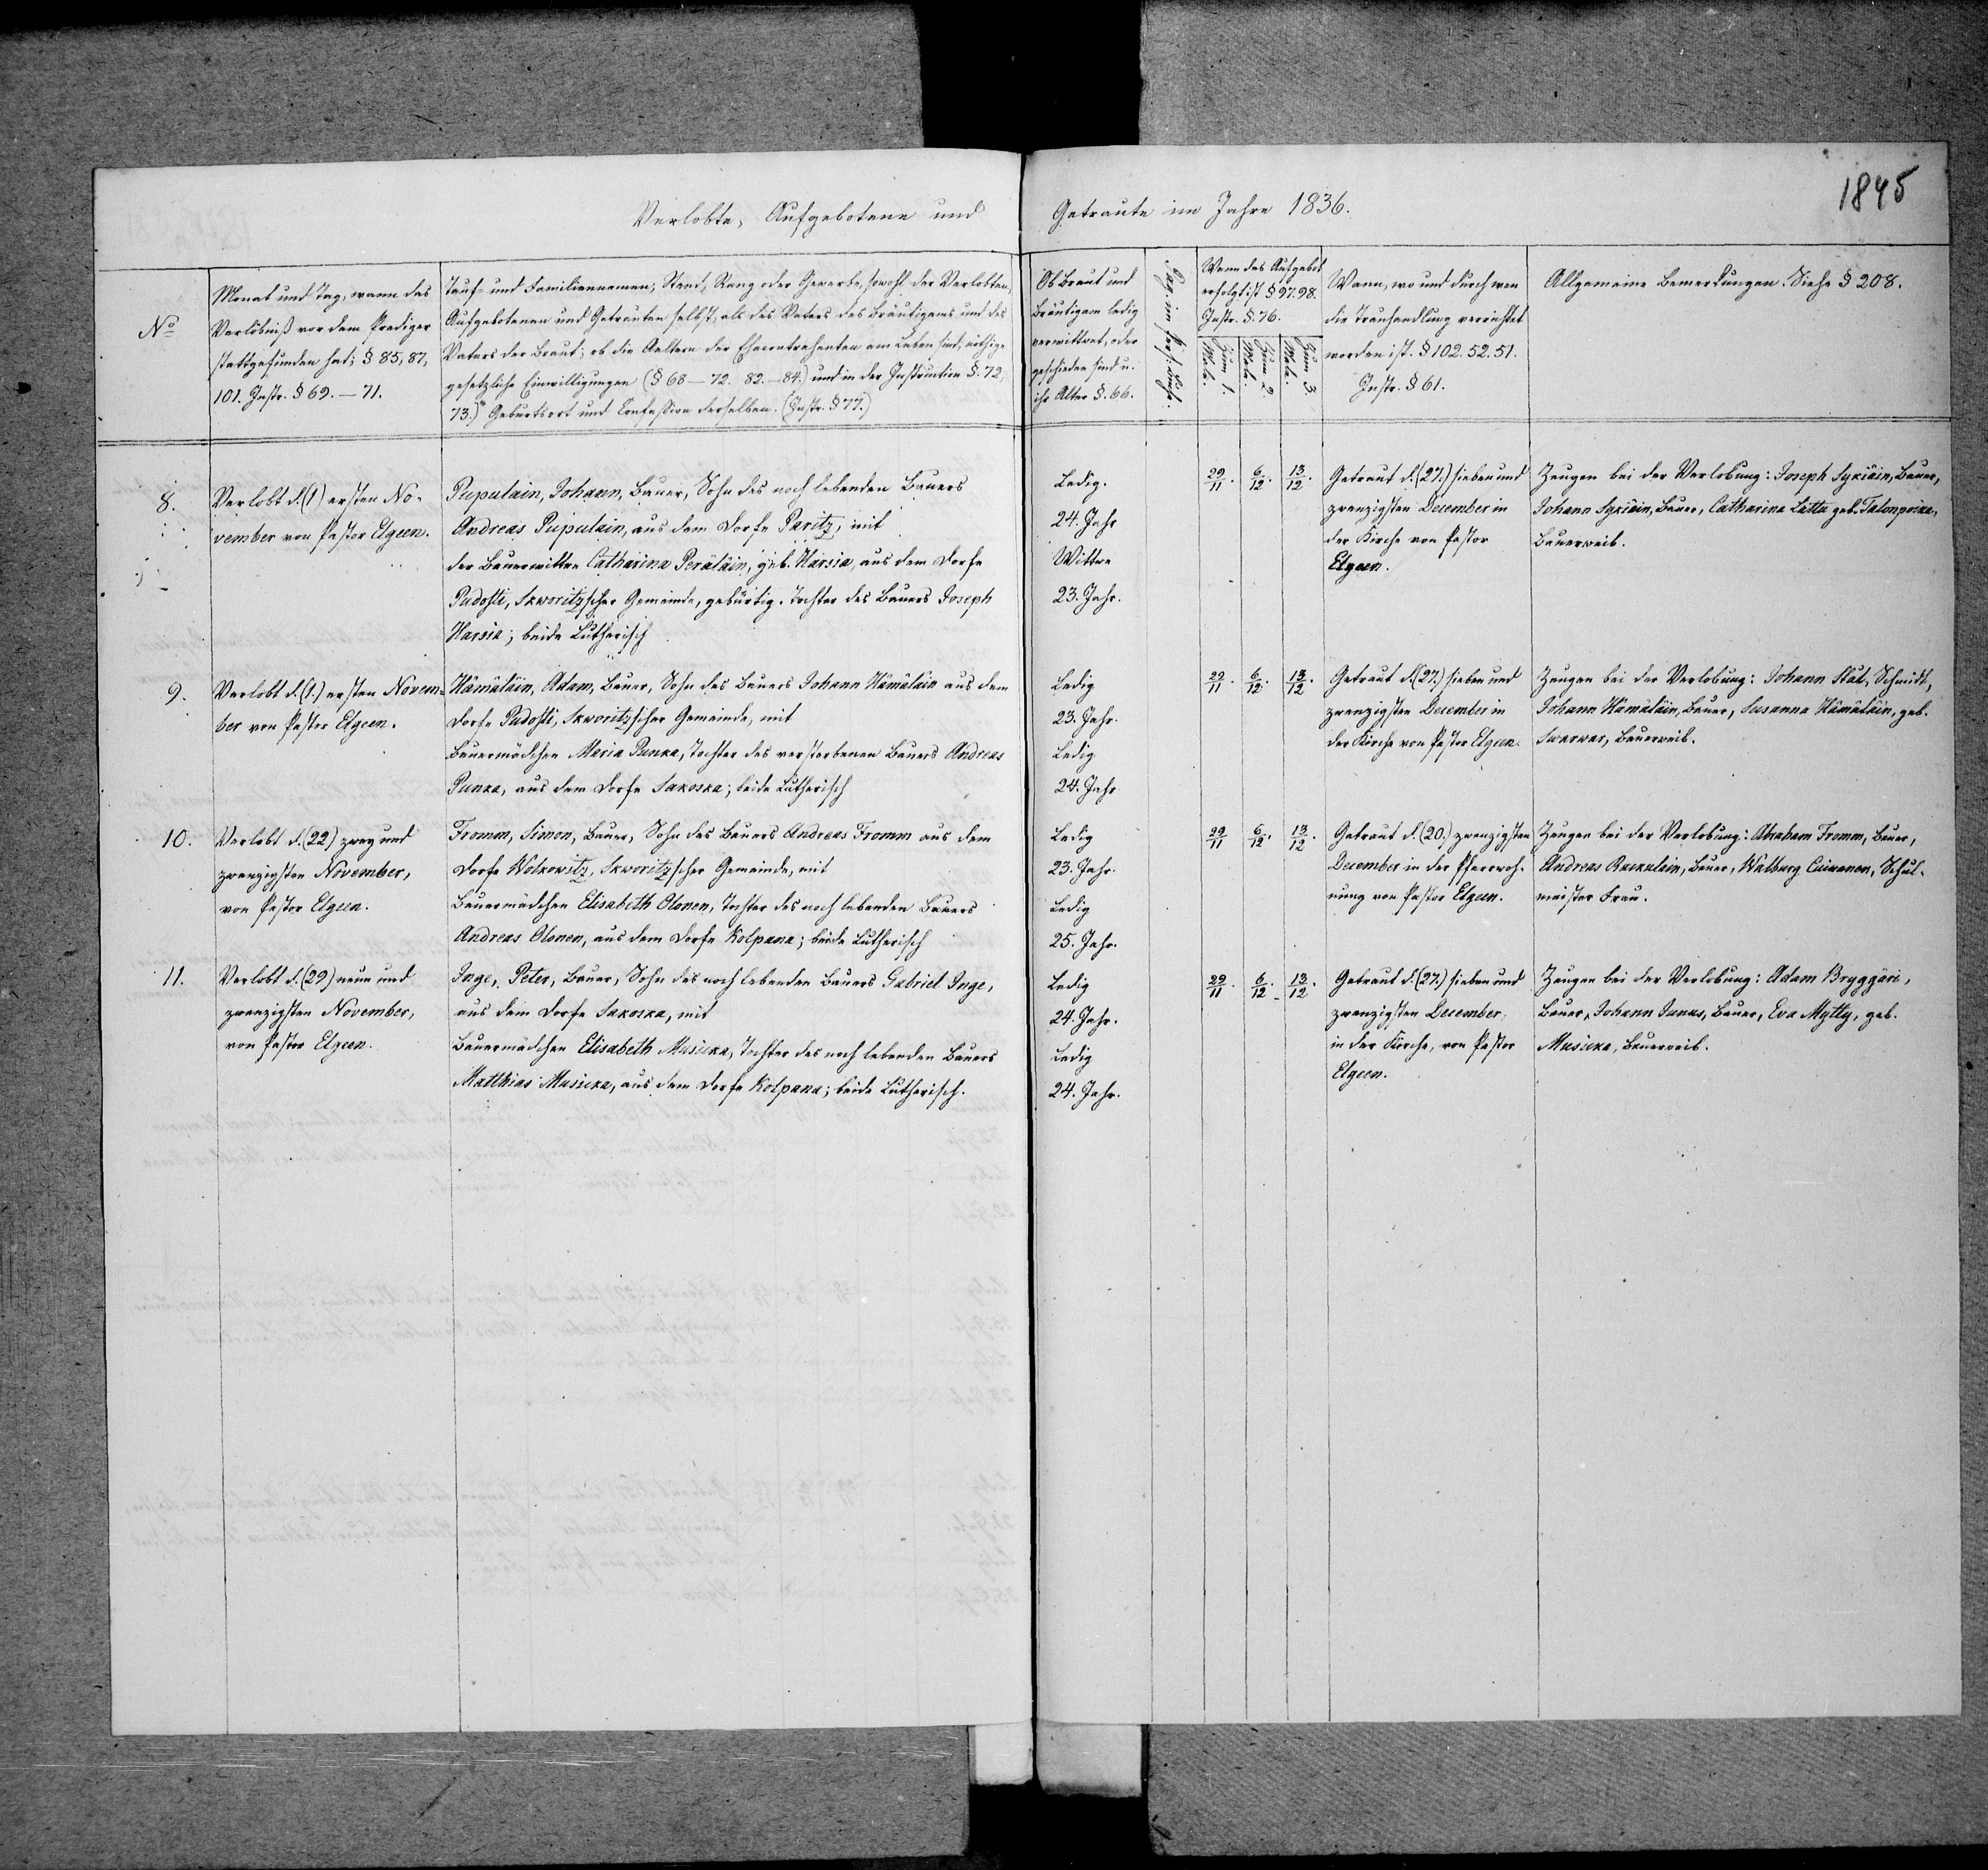 1845
Verlobte, Aufgebotene und
Getraute im Jahre 1836.
No
Monat und Tag, wann das
Verlöbniß vor dem Prediger
stattgefunden hat; § 85, 87,
101. Instr. § 69. — 71.
Tauf- und Familiennamen; Stand, Rang oder Gewerbe, sowohl der Verlobten,
Aufgebotenen und Getrauten selbst, als des Vaters des Bräutigams und des
Vaters der Braut; ob die Aeltern der Ehecontrahenten am Leben sind, nöthige
gesetzliche Einwilligungen (§ 68 — 72. 82. — 84.) und in der Instruction §. 72,
73.) Geburtsort und Confession derselben. (Instr. § 77.)
Ob Braut und
Bräutigam ledig
verwittwet, oder
geschieden sind u.
ihr Alter §. 66.
Pag. im
Wann das Aufgebot
erfolgt ist § 97. 98.
Instr. §. 76.
Zum 1. Male.
Zum 2. Male.
Zum 3. Male.
Wann, wo und durch wen
die Trauhandlung verrichtet
worden ist. § 102. 52. 51.
Instr. § 61.
Allgemeine Bemerkungen. Siehe § 208.
8.
Verlobt d. (1) ersten No-
vember von Pastor Elgeen.
Pupulain, Johann, Bauer, Sohn des noch lebenden Bauers
Andreas Pupulain, aus dem Dorfe Paritz, mit
der Bauerwittwe Catharina Peräläin, geb. Harsia, aus dem Dorfe
Pudosti, Skworitzscher Gemeinde, gebürtig. Tochter des Bauers Joseph
Harsia; beide Lutherisch
Ledig.
24. Jahr
Wittwe
23. Jahr.
29/11. 6/12. 13/12.
Getraut d. (27.) sieben und
zwanzigsten December in
der Kirche von Pastor
Elgeen.
Zeugen bei der Verlobung: Joseph Sykiäin, Bauer,
Johann Sykiäin, Bauer, Catharina Lättu geb. Talonpoika,
Bauerweib.
9.
Verlobt d. (1.) ersten Novem-
ber von Pastor Elgeen.
Hämäläin, Adam, Bauer, Sohn des Bauers Johann Hämäläin aus dem
Dorfe Pudosti, Skworitzscher Gemeinde, mit
Bauermädchen Maria Punka, Tochter des verstorbenen Bauers Andreas
Punka, aus dem Dorfe Sakoska; beide Lutherisch
Ledig
23. Jahr.
Ledig
24. Jahr
29/11. 6/12. 13/12.
Getraut d. (27.) sieben und
zwanzigsten December in
der Kirche von Pastor Elgeen.
Zeugen bei der Verlobung: Johann Slät, Schmidt,
Johann Hämäläin, Bauer, Susanna Hämäläin, geb.
Swarwar, Bauerweib.
10.
Verlobt d. (22) zwey und
zwanzigsten November,
von Pastor Elgeen.
Fromm, Simon, Bauer, Sohn des Bauers Andreas Fromm aus dem
Dorfe Wolkowitz, Skworitzscher Gemeinde, mit
Bauermädchen Elisabeth Olonen, Tochter des noch lebenden Bauers
Andreas Olonen, aus dem Dorfe Kolpana; beide Lutherisch
Ledig
23. Jahr.
Ledig
25. Jahr.
29/11 6/12. 13/12.
Getraut d. (20.) zwanzigsten
December in der Pfarrwoh-
nung von Pastor Elgeen.
Zeugen bei der Verlobung: Abraham Fromm, Bauer,
Andreas Raekulain, Bauer, Walburg Cuiwanen, Schul-
meister Frau.
11.
Verlobt d. (29) neun und
zwanzigsten November,
von Pastor Elgeen.
Inge, Peter, Bauer, Sohn des noch lebenden Bauers Gabriel Inge,
aus dem Dorfe Sakoska, mit
Bauermädchen Elisabeth Musicka, Tochter des noch lebenden Bauers
Matthias Musicka, aus dem Dorfe Kolpana; beide Lutherisch.
Ledig
24. Jahr.
Ledig
24. Jahr.
29/11. 6/12. 13/12.
Getraut d. (27.) sieben und
zwanzigsten December,
in der Kirche, von Pastor
Elgeen.
Zeugen bei der Verlobung: Adam Bryggäri,
Bauer, Johann Junus, Bauer, Eva Mytty, geb.
Musicka, Bauerweib.